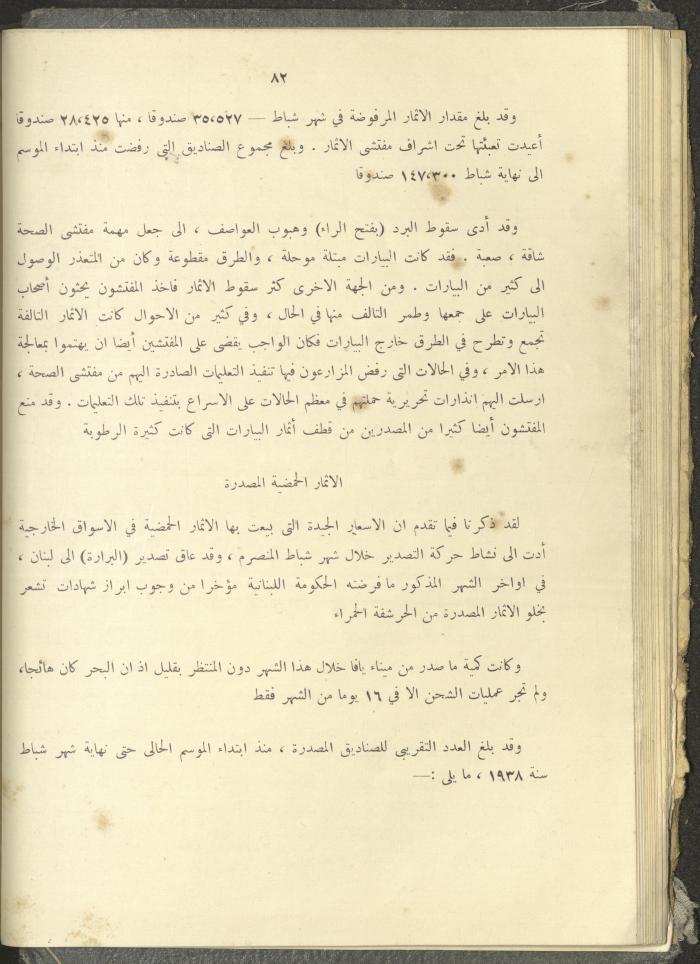 ٨٢
وقد بلغ مقدار الاثمار المرفوضة في شهر شباط — ٣٥،٥٢٧ صندوقا ، منها ٢٨،٤٢٥ صندوقا
أعيدت تعبئتها تحت اشراف مفتشى الاثمار . وبلغ مجموع الصناديق التي رفضت منذ ابتداء الموسم
الى نهاية شباط ١٤٧،٣٠٠ صندوقا
وقد أدى سقوط البرد (بفتح الراء) وهبوب العواصف ، الى جعل مهمة مفتشى الصحة
شاقة ، صعبة . فقد كانت البيارات مبتلة موحلة ، والطرق مقطوعة وكان من المتعذر الوصول
الى كثير من البيارات . ومن الجهة الاخرى كثر سقوط الاثمار فاخذ المفتشون يحثون أصحاب
البيارات على جمعها وطمر التالف منها في الحال ، وفي كثير من الاحوال كانت الاثمار التالفة
تجمع وتطرح في الطرق خارج البيارات فكان الواجب يقضى على المفتشين أيضا ان يهتموا بمعالجة
هذا الامر ، وفي الحالات التى رفض المزارعون فيها تنفيذ التعليمات الصادرة اليهم من مفتشى الصحة ،
ارسلت اليهم انذارات تحريرية حملتهم في معظم الحالات على الاسراع بتنفيذ تلك التعليمات . وقد منع
المفتشون أيضا كثيرا من المصدرين من قطف أثمار البيارات التى كانت كثيرة الرطوبة
الاثمار الحمضية المصدرة
لقد ذكرنا فيما تقدم ان الاسعار الجيدة التى بيعت بها الاثمار الحمضية في الاسواق الخارجية
أدت الى نشاط حركة التصدير خلال شهر شباط المنصرم ، وقد عاق تصدير (البرارة) الى لبنان ،
في اواخر الشهر المذكور ما فرضته الحكومة اللبنانية مؤخرا من وجوب ابراز شهادات تشعر
بخلو الاثمار المصدرة من الحرشفة الحمراء
وكانت كمية ما صدر من ميناء يافا خلال هذا الشهر دون المنتظر بقليل اذ ان البحر كان هائجا،
ولم تجر عمليات الشحن الا في ١٦ يوما من الشهر فقط
وقد بلغ العدد التقريبى للصناديق المصدرة ، منذ ابتداء الموسم الحالى حتى نهاية شهر شباط
سنة ١٩٣٨ ، ما يلى :—